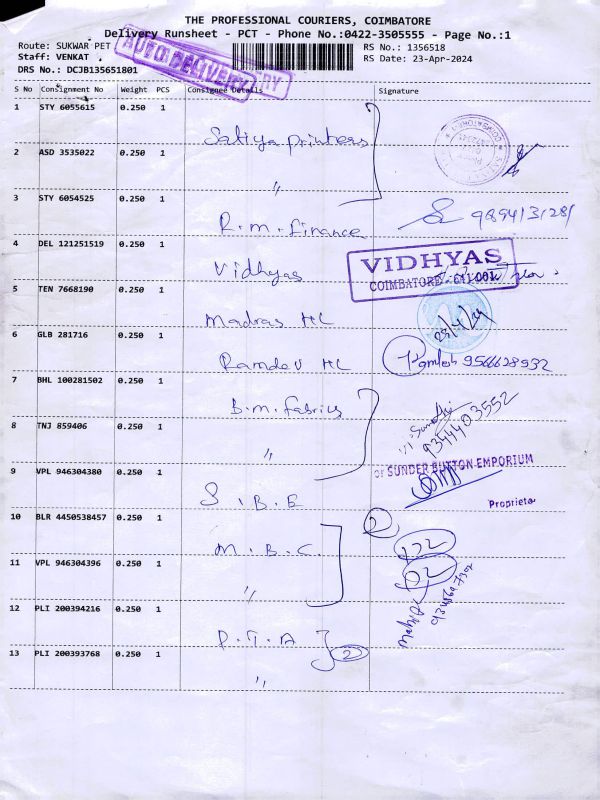 THE PROFESSIONAL COURIERS, COIMBATORE
Delivery Runsheet - PCT - Phone No.:0422-3505555 - Page No.:1
Route: SUKWAR PET
RS No.: 1356518
Staff: VENKAT
RS Date: 23-Apr-2024
DRS No.: DCJB135651801
AUTO DELIVERY
S No Consignment No Weight PCS Consignee Details Signature
1 STY 6055615 0.250 1
Satiya printers
2 ASD 3535022 0.250 1
"
3 STY 6054525 0.250 1
R.m. finance
4 DEL 121251519 0.250 1
Vidhyas
VIDHYAS
COIMBATORE - 641 001
5 TEN 7668190 0.250 1
Madras HC
23/4/24
6 GLB 281716 0.250 1
Ramdev HC
Kamlesh 9566628932
7 BHL 100281502 0.250 1
B.m. fabrics
9344403552
8 TNJ 859406 0.250 1
"
or SUNDER BUTTON EMPORIUM
9 VPL 946304380 0.250 1
S.B.E
Proprietor
10 BLR 4450538457 0.250 1
M.B.C.
2
11 VPL 946304396 0.250 1
"
12 PLI 200394216 0.250 1
P.T.A
2
13 PLI 200393768 0.250 1
"